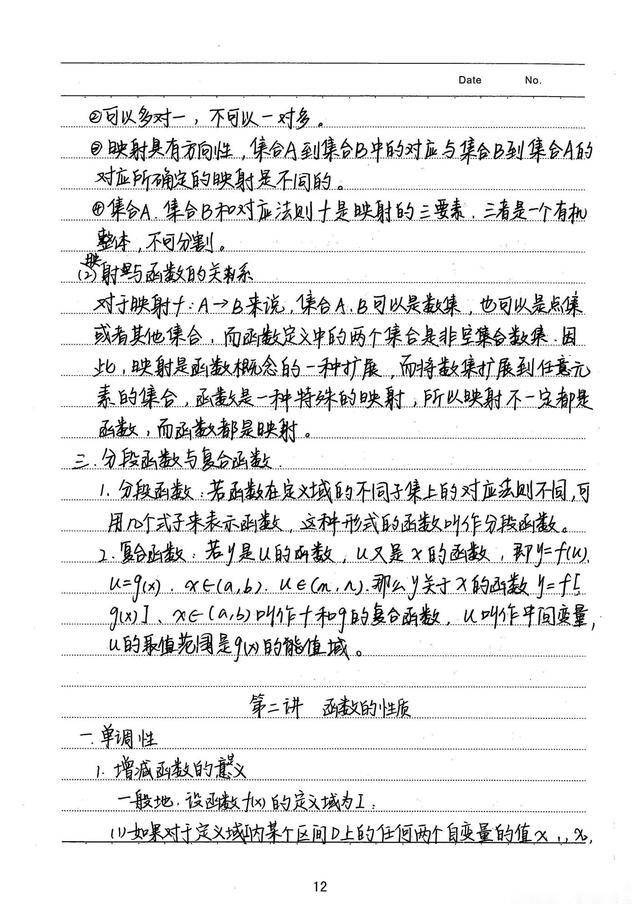 Date No.
②可以多对一，不可以一对多。
③映射具有方向性，集合A到集合B中的对应与集合B到集合A的
对应所确定的映射是不同的。
④集合A.集合B和对应法则f是映射的三要素.三者是一个有机
整体，不可分割。
(2)映射与函数的关系
对于映射f:A→B来说，集合A.B可以是数集，也可以是点集
或者其他集合，而函数定义中的两个集合是非空集合数集.因
此，映射是函数概念的一种扩展，而将数集扩展到任意元
素的集合，函数是一种特殊的映射，所以映射不一定都是
函数，而函数都是映射。
三.分段函数与复合函数.
1.分段函数:若函数在定义域的不同子集上的对应法则不同,可
用几个式子来表示函数，这种形式的函数叫作分段函数。
2.复合函数:若y是u的函数，u又是x的函数，即y=f(u).
u=g(x).x∈(a,b).u∈(m,n).那么y关于x的函数y=f[
g(x)]、x∈(a,b)叫作f和g的复合函数，u叫作中间变量，
u的取值范围是g(x)的值域。
第二讲 函数的性质
一.单调性
1.增减函数的意义
一般地.设函数f(x)的定义域为I:
(1)如果对于定义域I内某个区间D上的任何两个自变量的值x₁,x₂,
12